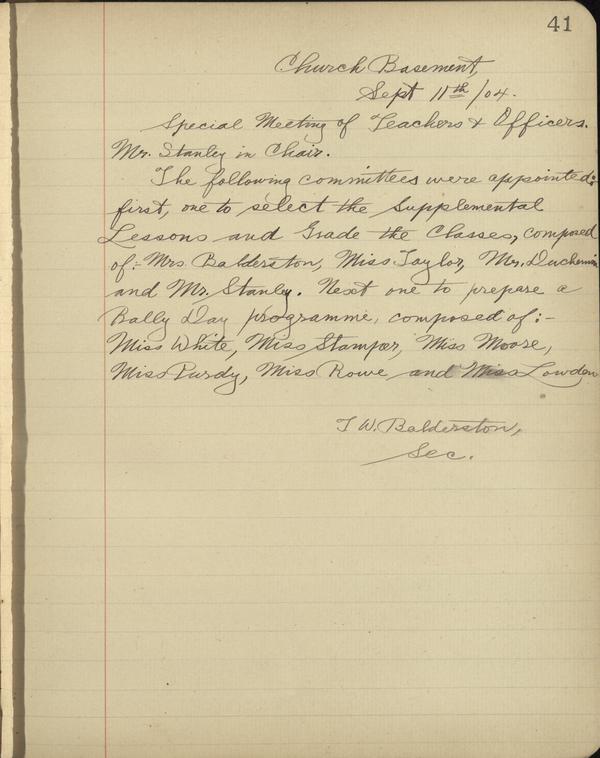 41
Church Basement,
Sept 11th /04.
Special Meeting of Teachers & Officers.
Mr. Stanley in Chair.
The following committees were appointed:
first, one to select the Supplemental
Lessons and Grade the Classes, composed
of:- Mrs Balderston, Miss Taylor, Mr. Duchemin
and Mr. Stanley. Next one to prepare a
Rally Day programme, composed of:-
Miss White, Miss Stamper, Miss Moore,
Miss Purdy, Miss Rowe and Miss Lowden
T W. Balderston,
Sec.